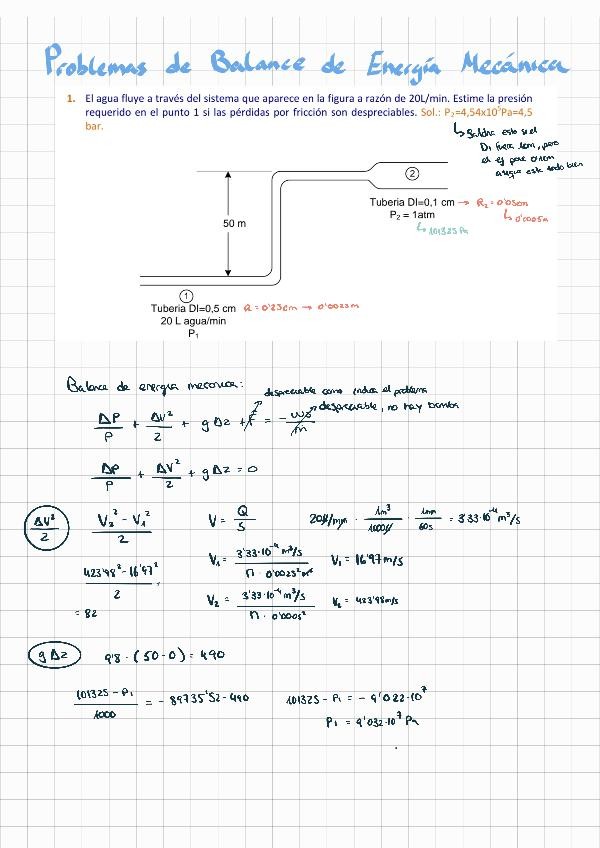 Problemas de Balance de Energía Mecánica
1. El agua fluye a través del sistema que aparece en la figura a razón de 20L/min. Estime la presión
requerido en el punto 1 si las pérdidas por fricción son despreciables. Sol.: P₂=4,54x10⁵Pa=4,5
bar.
↳ Saldría esto si el
D₁ fuera 1cm, pero
el ej pone 0'1cm
aunque este todo bien
2
50 m
Tuberia DI=0,1 cm → R₂ = 0'05cm
↳ 0'0005m
P₂ = 1atm
↳ 101325 Pa
1
Tuberia DI=0,5 cm R = 0'25cm → 0'0025m
20 L agua/min
P₁
Balance de energía mecánica:
despreciable como indica el problema
despreciable, no hay bomba
ΔP/ρ + ΔV²/2 + gΔz + F = -Ws/m
ΔP/ρ + ΔV²/2 + gΔz = 0
ΔV²/2 V₂² - V₁²/2 V = Q/S 20 l/min · 1m³/1000 l · 1min/60s = 3'33·10⁻⁴ m³/s
423'98² - 16'97²/2 V₁ = 3'33·10⁻⁴ m³/s / π · 0'0025² m² V₁ = 16'97 m/s
= 82 V₂ = 3'33·10⁻⁴ m³/s / π · 0'0005² V₂ = 423'98 m/s
gΔz 9'8 · (50-0) = 490
101325 - P₁/1000 = - 89735'52 - 490 101325 - P₁ = - 9'022·10⁷
P₁ = 9'032·10⁷ Pa